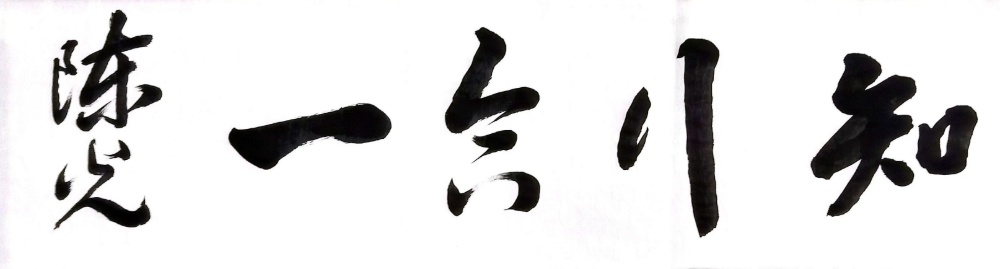 知行合一
陈光